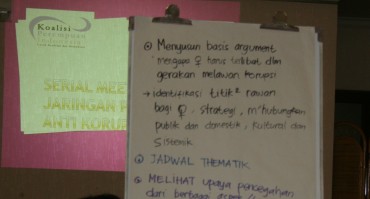 Koalisi
Perempuan
Indonesia
SERIAL MEE
JARINGAN P
ANTI KORU
⊙ Menyusun basis argument
mengapa ♀ harus terlibat dlm
gerakan melawan korupsi
→ identifikasi titik² rawan
bagi ♀. strategi, m'hubungkan
publik dan domestik, kultural dan
Sistemik
⊙ JADWAL THEMATIK
⊙ MELIHAT upaya pencegahan
dari berbagai